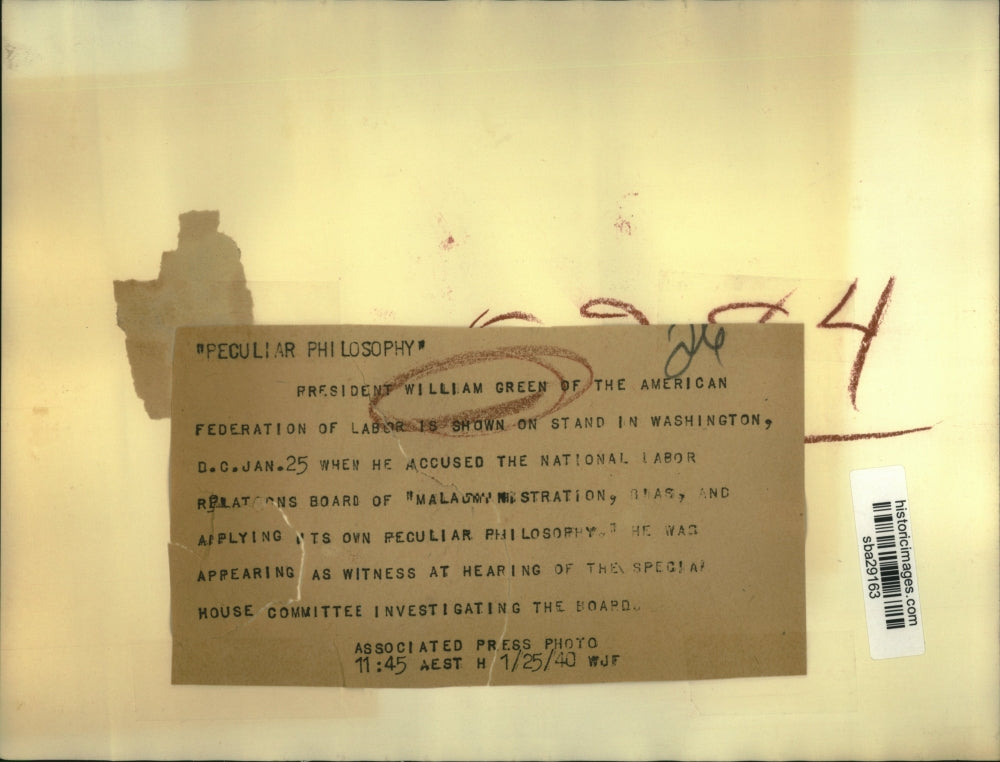 "PECULIAR PHILOSOPHY"
26
PRESIDENT WILLIAM GREEN OF THE AMERICAN
FEDERATION OF LABOR IS SHOWN ON STAND IN WASHINGTON,
D.C.JAN.25 WHEN HE ACCUSED THE NATIONAL LABOR
RELATIONS BOARD OF "MALADMINISTRATION, BIAS, AND
APPLYING ITS OWN PECULIAR PHILOSOPHY." HE WAS
APPEARING AS WITNESS AT HEARING OF THE SPECIAL
HOUSE COMMITTEE INVESTIGATING THE BOARD.
ASSOCIATED PRESS PHOTO
11:45 AEST H 1/25/40 WJF
4
historicimages.com
sba29163